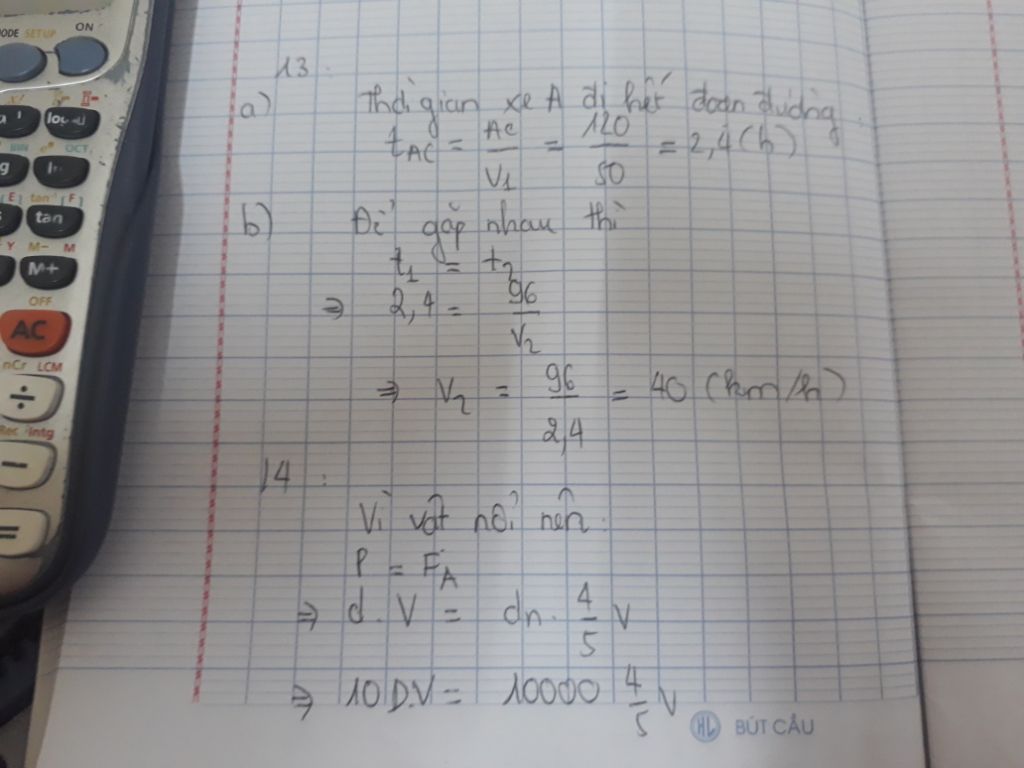 ON
MODE SETUP
OCT
[E] tan⁻¹ [F]
tan
Y M- M
M+
OFF
AC
nCr LCM
÷
Rec Intg
−
=
13.
a) Thời gian xe A đi hết đoạn đường
t_AC = AC/V₁ = 120/50 = 2,4 (h)
b) Để gặp nhau thì
t₁ = t₂
⇒ 2,4 = 96/V₂
⇒ V₂ = 96/2,4 = 40 (km/h)
14 :
Vì vật nổi nên.
P = F_A
⇒ d.V = dn. 4/5 V
⇒ 10D.V = 10000 4/5 V
HL BÚT CÂU